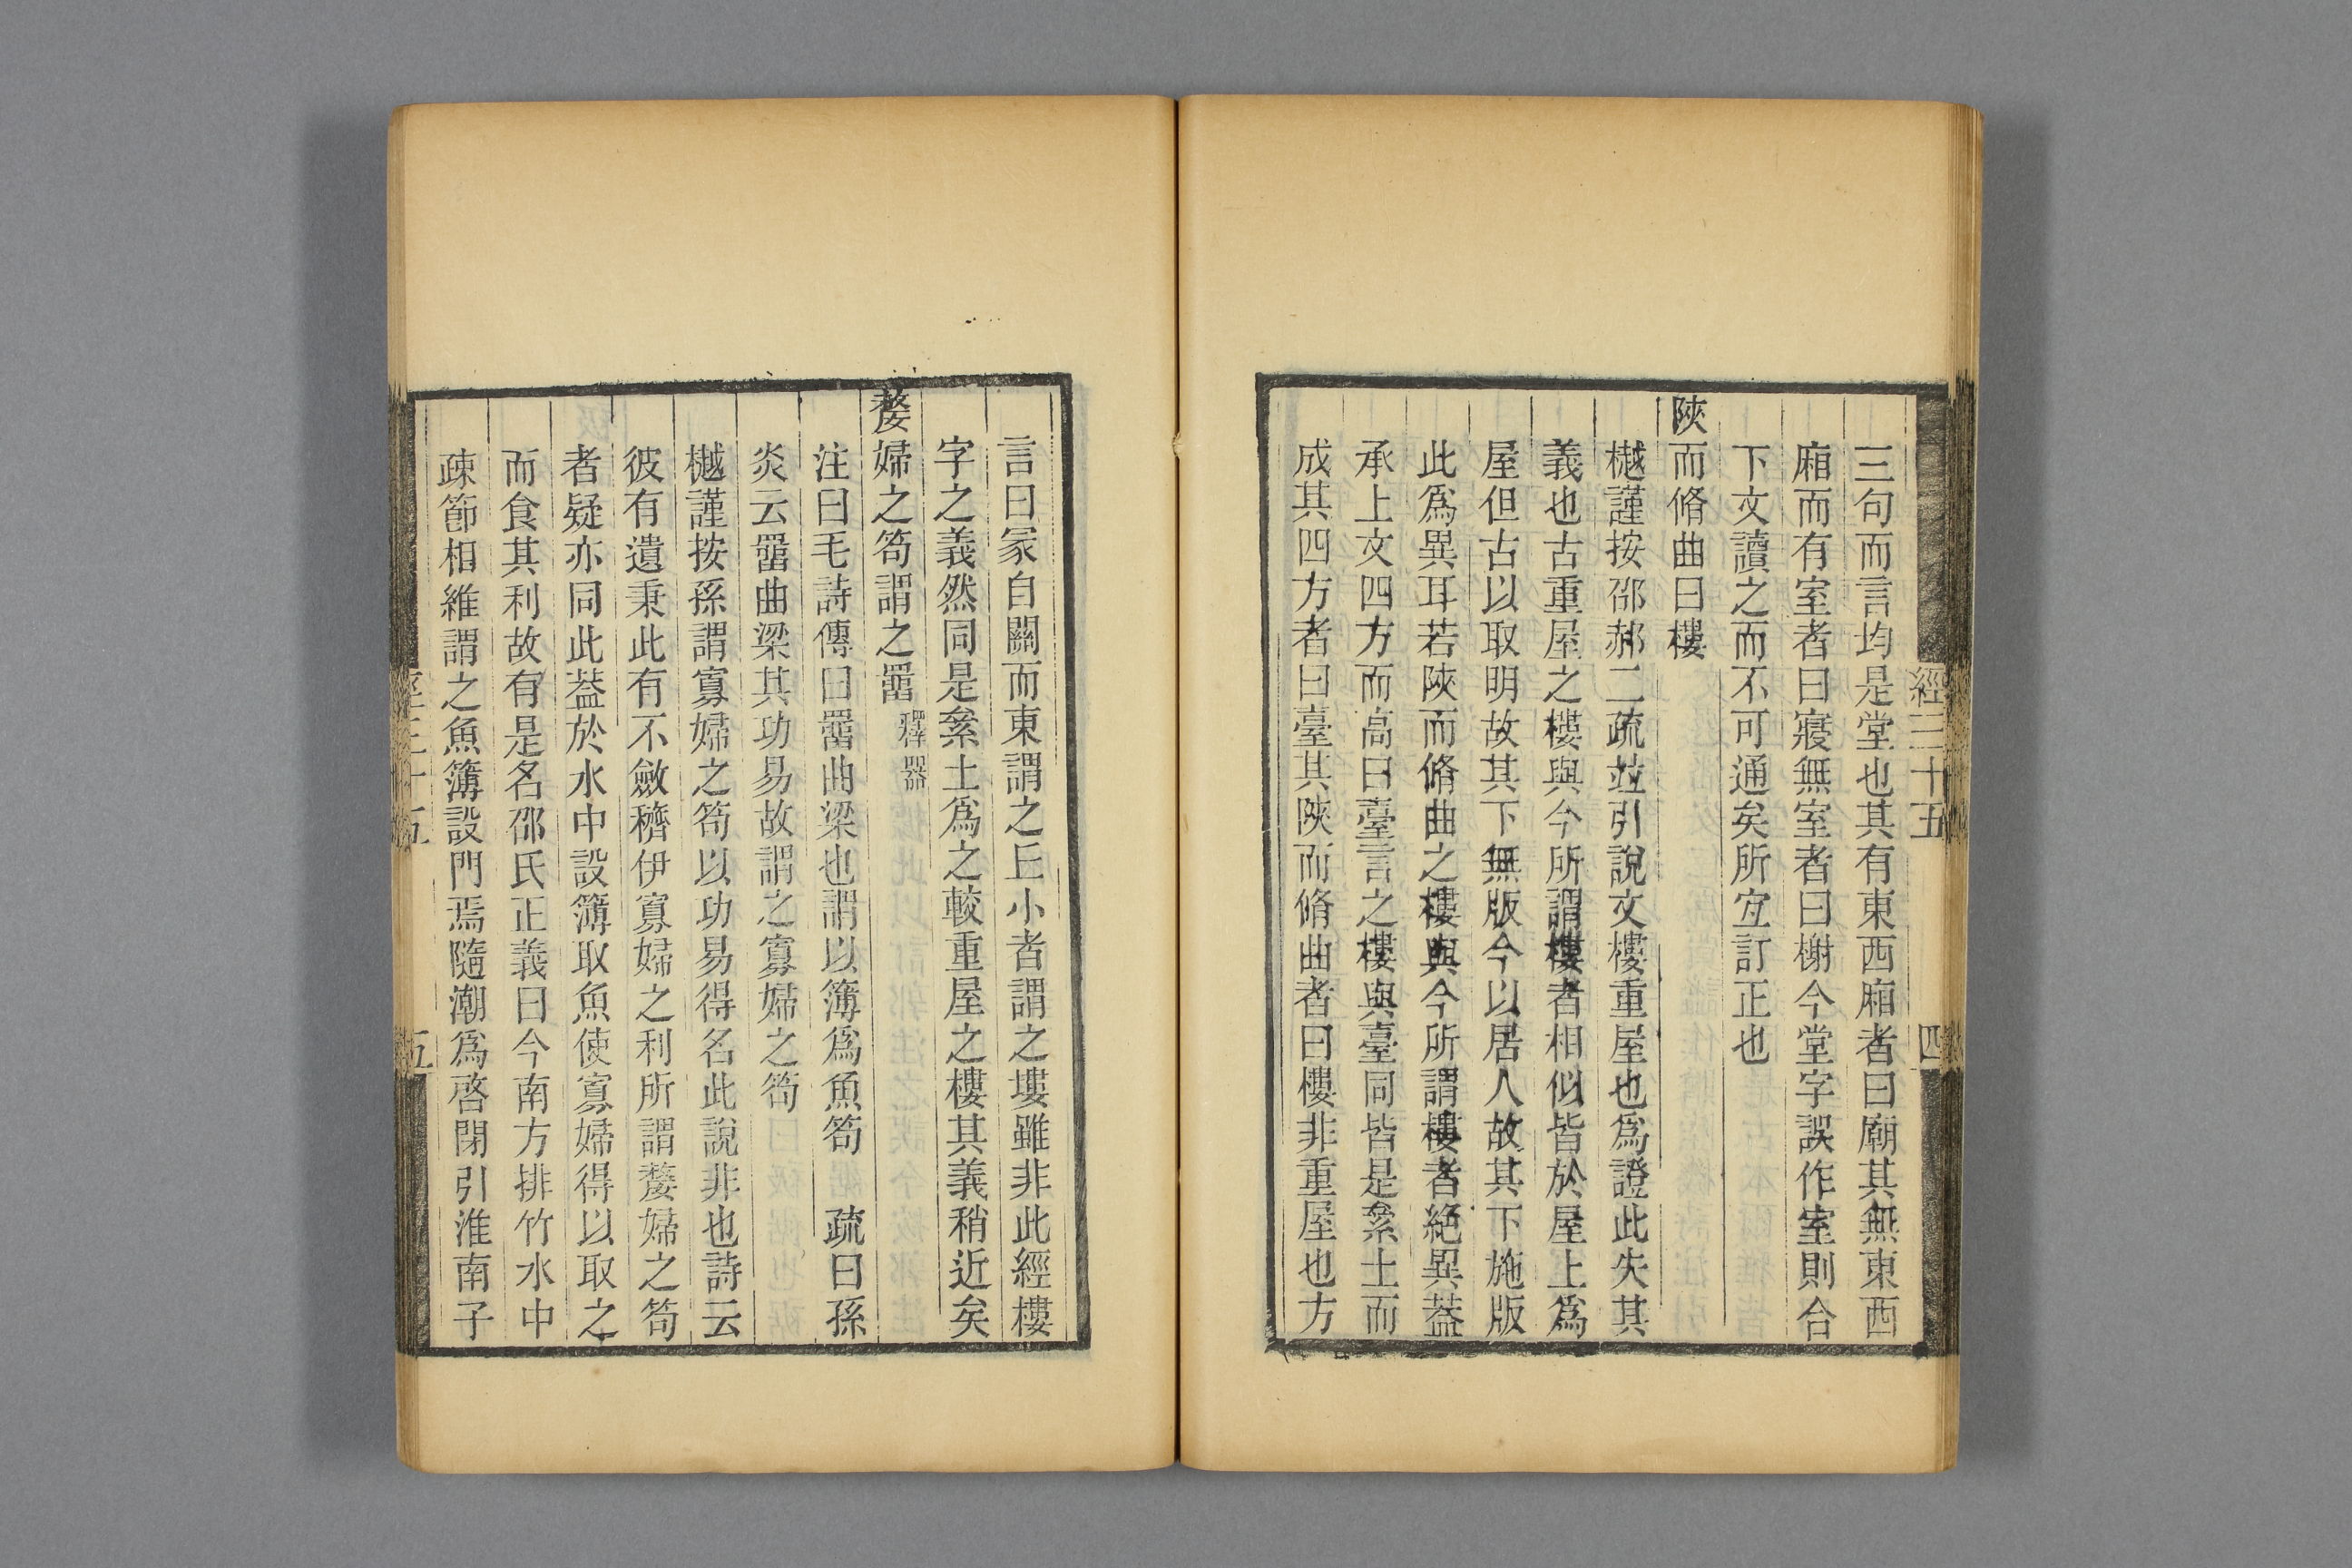 經三十五
四
三句而言均是堂也其有東西廂者曰廟其無東西
廂而有室者曰寢無室者曰榭今堂字誤作室則合
下文讀之而不可通矣所宜訂正也
陝而脩曲曰樓
樾謹按邵郝二疏竝引說文樓重屋也爲證此失其
義也古重屋之樓與今所謂樓者相似皆於屋上爲
屋但古以取明故其下無版今以居人故其下施版
此爲異耳若陝而脩曲之樓與今所謂樓者絕異葢
承上文四方而高曰臺言之樓與臺同皆是絫土而
成其四方者曰臺其陝而脩曲者曰樓非重屋也方
言曰冢自關而東謂之丘小者謂之塿雖非此經樓
字之義然同是絫土爲之較重屋之樓其義稍近矣
嫠婦之笱謂之罶 釋器
注曰毛詩傳曰罶曲梁也謂以簿爲魚笱 疏曰孫
炎云罶曲梁其功易故謂之寡婦之笱
樾謹按孫謂寡婦之笱以功易得名此說非也詩云
彼有遺秉此有不斂穧伊寡婦之利所謂嫠婦之笱
者疑亦同此葢於水中設簿取魚使寡婦得以取之
而食其利故有是名邵氏正義曰今南方排竹水中
疎節相維謂之魚簿設門焉隨潮爲啓閉引淮南子
經三十五
五